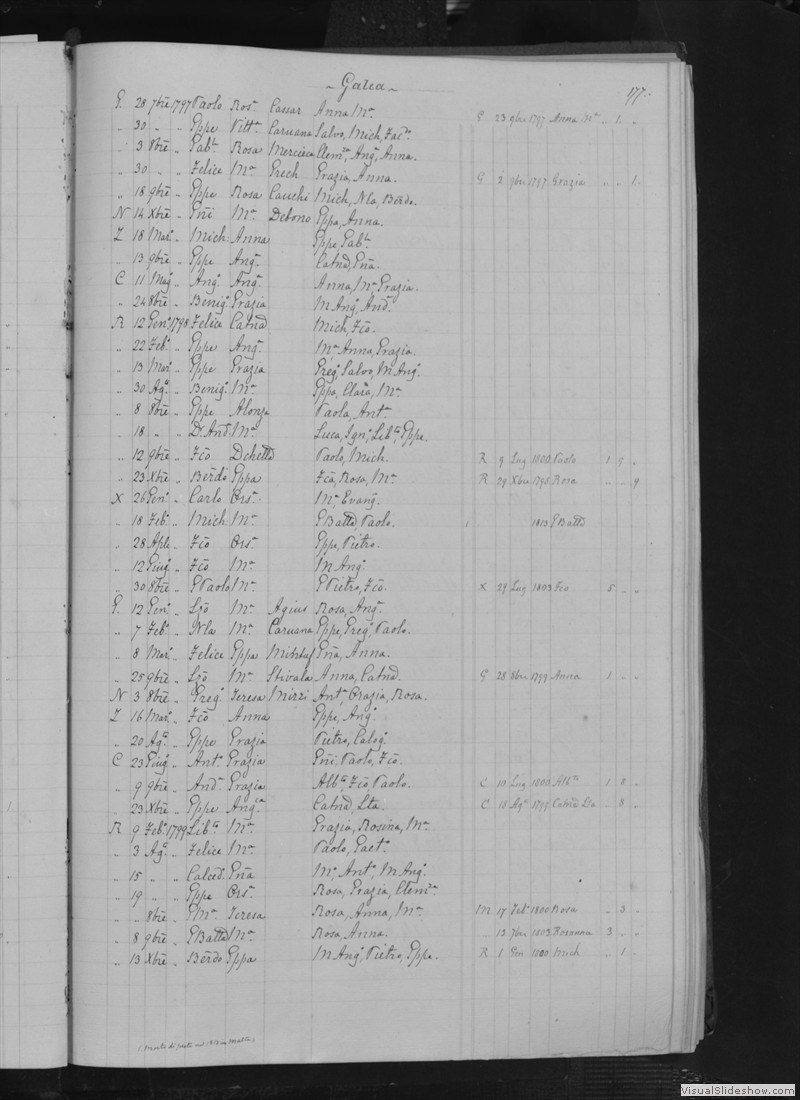 ~ Galea ~
177.
G. 28 7bre 1797 Paolo Ros.ª Cassar Anna M.ª G 23 9bre 1797 Anna M.ª .. 1 ..
.. 30 .. .. Gppe Vitt.ª Caruana Salvo, Mich,
.. 3 8bre .. Gab.le Rosa Mercieca Clem.za, Ang.ª, Anna.
.. 30 .. .. Felice M.ª Grech Grazia, Anna. G 2 9bre 1797 Grazia .. .. 1 ..
.. 18 9bre .. Gppe Rosa Cauchi Mich, Nla, Berdo.
N 14 Xbre .. Gñi M.ª Debono Gppa, Anna.
Z 18 Mar.º .. Mich: Anna Gppe, Gab.le
.. 13 9bre .. Gppe Ang.ª Catnd, Gña.
C 11 Mag.º .. Ang.º Ang.ª Anna, M.ª, Grazia.
.. 24 8bre .. Benig.º Grazia M Ang.º, And.ª
R 12 Gen.º 1798 Felice Catnd Mich, Fco.
.. 22 Feb.º .. Gppe Ang.ª M.ª Anna, Grazia.
.. 13 Mar.º .. Gppe Grazia Greg.º, Salvo, M Ang.º
.. 30 Ag.º .. Benig.º M.ª Gppa, Clara, M.ª
.. 8 8bre .. Gppe Alonza Paola, Ant.º
.. 18 .. .. Dr And.ª M.ª Luca, Ign.º, Lib.ta, Gppe.
.. 12 9bre .. Fco Dchetta Paolo, Mich. R 9 Lug 1800 Paolo 1 9 ..
.. 23 Xbre .. Berdo Gppa Fca, Rosa, M.ª R 29 Xbre 1798 Rosa .. .. 9
X 26 Gen.º .. Carlo Ors.ª M.ª, Evang.
.. 18 Feb.º .. Mich: M.ª G Batta, Paolo. 1 1813 G Batta
.. 28 Aple .. Fco Ors.ª Gppe, Pietro.
.. 12 Giug.º .. Fco M.ª M Ang.º
.. 30 8bre .. G Paolo M.ª G Pietro, Fco. X 29 Lug 1803 Fco 5 .. ..
G. 12 Gen.º .. Lzo M.ª Agius Rosa, Ang.ª
.. 7 Feb.º .. Nla M.ª Caruana Gppe, Greg.º, Paolo.
.. 8 Mar.º .. Felice Gppa Mintuf Gña, Anna.
.. 25 9bre .. Lzo M.ª Stivala Anna, Catnd. G 28 8bre 1799 Anna 1 .. ..
N 3 8bre .. Greg.º Teresa Mizzi Ant.º, Grazia, Rosa.
Z 16 Mar.º .. Fco Anna Gppe, Ang.º
.. 20 Ag.º .. Gppe Grazia Pietro, Calog.º
C 23 Giug.º .. Ant.º Grazia Gñi, Paolo, Fco.
.. 9 9bre .. And.ª Grazia Alb.ta, Fco, Paolo. C 10 Lug 1800 Alb.ta 1 8 ..
.. 23 Xbre .. Gppe Ang.ca Catnd, Lta. C 18 Ag.º 1799 Catnd Lta .. 8 ..
R 9 Feb.º 1799 Lib.to M.ª Grazia, Rosina, M.ª
.. 3 Ag.º .. Felice M.ª Paolo, Gaet.º
.. 15 .. .. Calced.º Gña M.ª, Ant.º, M Ang.º
.. 19 .. .. Gppe Ors.ª Rosa, Grazia, Clem.za
.. .. 8bre .. G M.ª Teresa Rosa, Anna, M.ª M 17 Feb.º 1800 Rosa .. 3 ..
.. 8 9bre .. G Batta M.ª Rosa, Anna. .. 13 7bre 1803 Rosanna 3 .. ..
.. 13 Xbre .. Berdo Gppa M Ang.º, Pietro, Gppe. R 1 Gen 1800 Mich .. 1 ..
1 Morto di peste nel 1813 in Malta.
VisualSlideshow.com